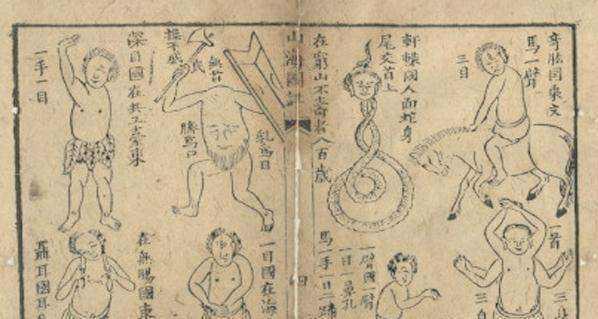 奇肱囯乘文
馬一臂
三目
軒轅國人面蛇身
尾交首上
在窮山不壽者八百歲
一首
三身
一臂國一臂
一目一鼻孔
馬一手一目一蹄
山海圖
無首
乳為目
臍為口
深目國在共工臺東
一手一目
一目國在海
在無腸國東
聶耳國耳